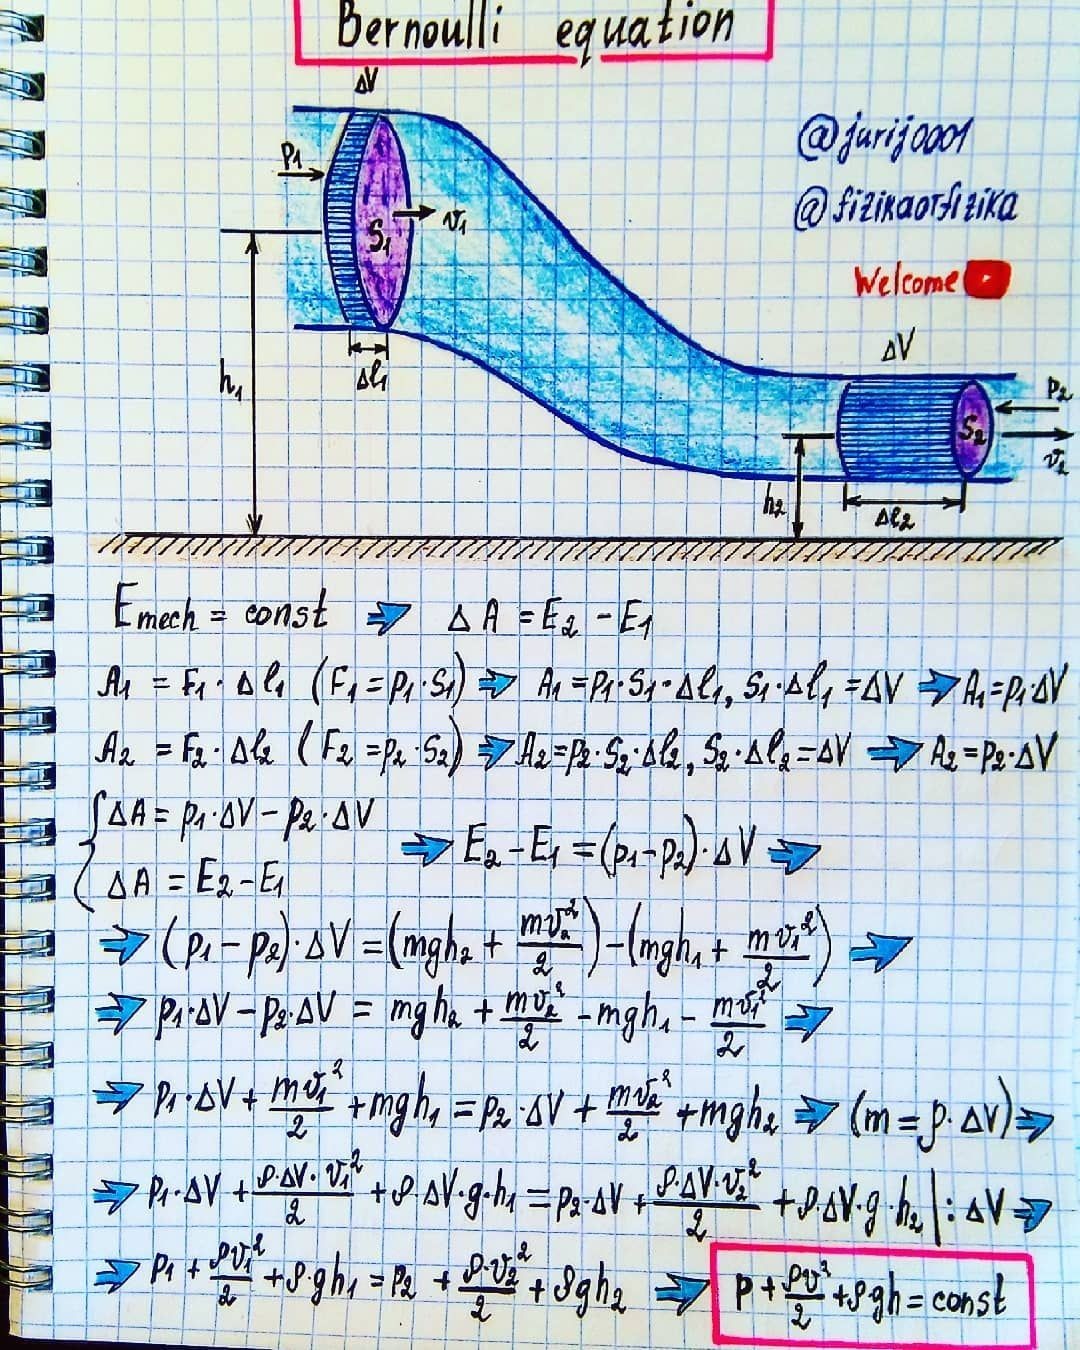 Bernoulli equation
ΔV
@jurij0001
P₁
@fizikaotfizika
S₁
v₁
Welcome
ΔV
h₁
Δl₁
P₂
S₂
v₂
h₂
Δl₂
Emech = const ⇒ ΔA = E₂ - E₁
A₁ = F₁ · Δl₁ (F₁ = p₁ · S₁) ⇒ A₁ = p₁ · S₁ · Δl₁, S₁ · Δl₁ = ΔV ⇒ A₁ = p₁ · ΔV
A₂ = F₂ · Δl₂ (F₂ = p₂ · S₂) ⇒ A₂ = p₂ · S₂ · Δl₂, S₂ · Δl₂ = ΔV ⇒ A₂ = p₂ · ΔV
{ ΔA = p₁ · ΔV - p₂ · ΔV
ΔA = E₂ - E₁
⇒ E₂ - E₁ = (p₁ - p₂) · ΔV ⇒
⇒ (p₁ - p₂) · ΔV = (mgh₂ + mv₂²/2) - (mgh₁ + mv₁²/2) ⇒
⇒ p₁ · ΔV - p₂ · ΔV = mgh₂ + mv₂²/2 - mgh₁ - mv₁²/2 ⇒
⇒ p₁ · ΔV + mv₁²/2 + mgh₁ = p₂ · ΔV + mv₂²/2 + mgh₂ ⇒ (m = ρ · ΔV) ⇒
⇒ p₁ · ΔV + ρ · ΔV · v₁²/2 + ρ · ΔV · g · h₁ = p₂ · ΔV + ρ · ΔV · v₂²/2 + ρ · ΔV · g · h₂ | : ΔV ⇒
⇒ p₁ + ρv₁²/2 + ρ · gh₁ = p₂ + ρ · v₂²/2 + ρgh₂ ⇒ p + ρv²/2 + ρgh = const